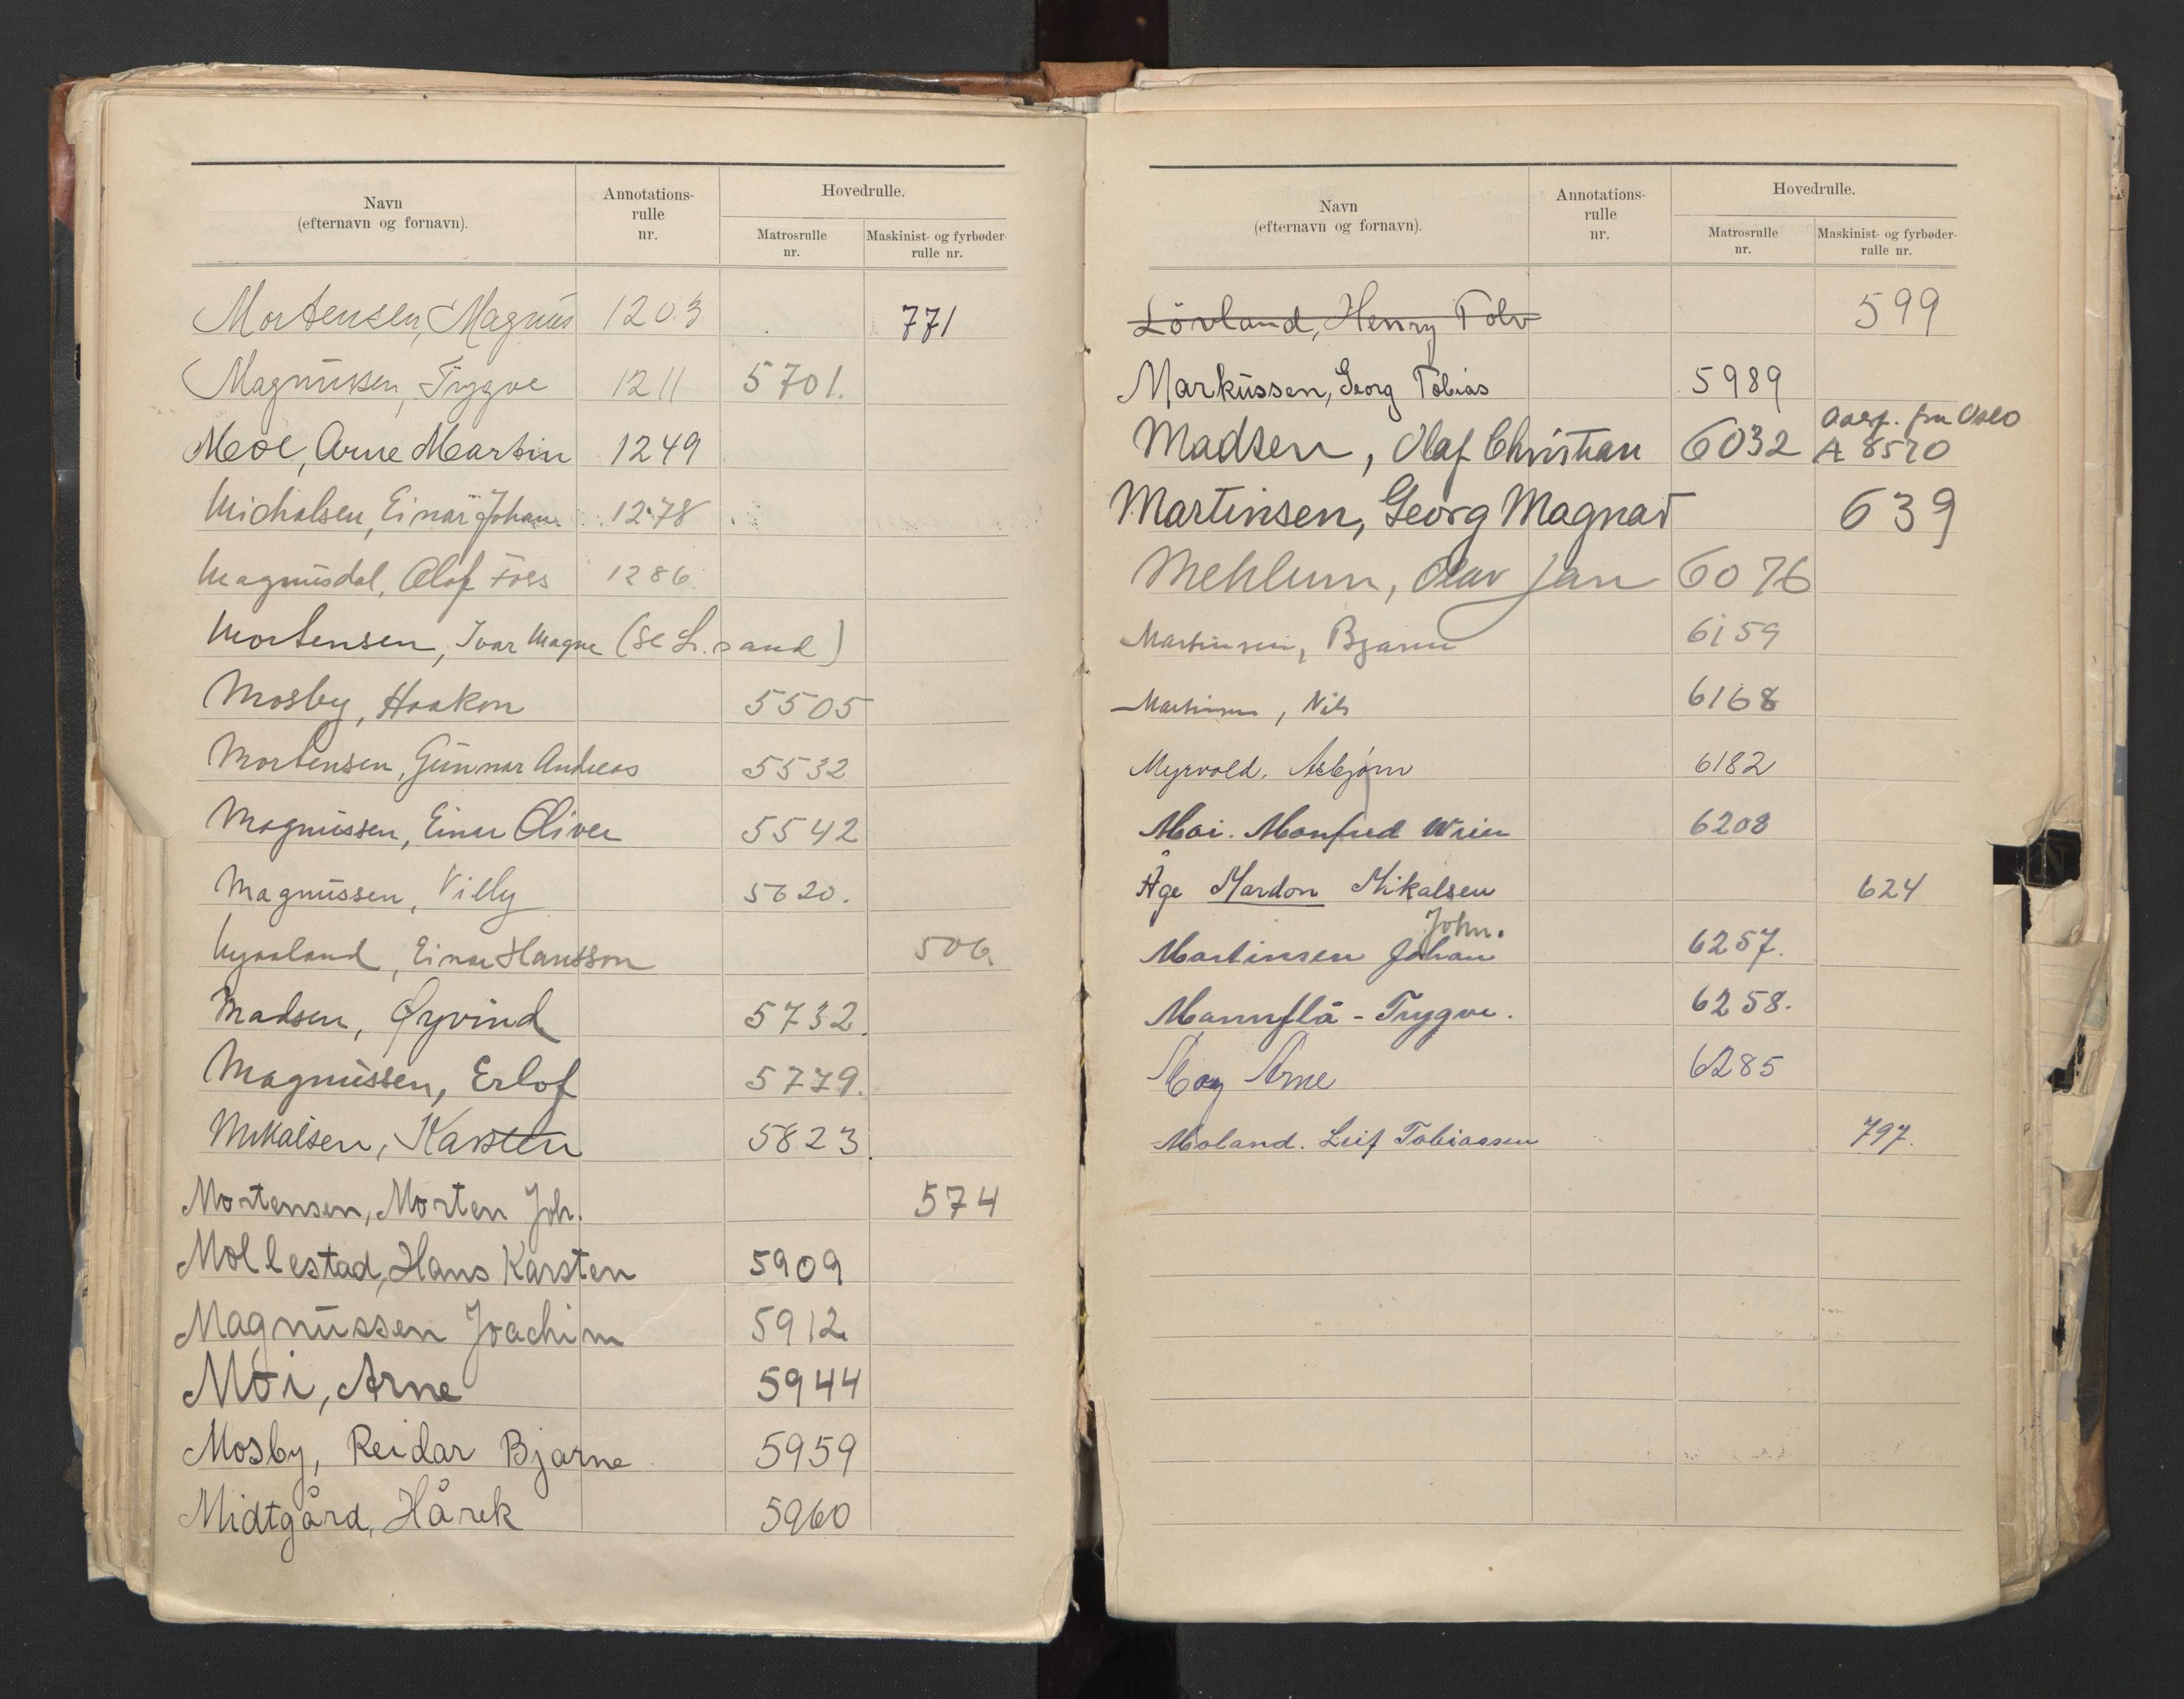 Navn (efternavn og fornavn). Annotations-rulle nr. Hovedrulle. Matrosrulle nr. Maskinist- og fyrbøder-rulle nr.
Mortensen, Magnus 1203 771
Magnussen, Trygve 1211 5701.
Moe, Arne Martin 1249
Michalsen, Einar Johan 1278
Magnusdal, Olof Foss 1286
Mortensen, Ivar Magne (se L. sand)
Mosby, Haakon 5505
Mortensen, Gunnar Andreas 5532
Magnussen, Einar Oliver 5542
Magnussen, Villy 5620.
Myraland, Einar Hansson 506
Madsen, Øyvind 5732.
Magnussen, Erlof 5779.
Mikalsen, Karsten 5823.
Mortensen, Morten Joh. 574
Mollestad, Hans Karsten 5909
Magnussen Joachim 5912
Moi, Arne 5944
Mosby, Reidar Bjarne 5959
Midtgård, Hårek 5960
Navn (efternavn og fornavn). Annotations-rulle nr. Hovedrulle. Matrosrulle nr. Maskinist- og fyrbøder-rulle nr.
Lövland, Henry Tolv 599
Markussen, Georg Tobias 5989
fra Oslo
Madsen, Olaf Christian 6032 A 8570
Martinsen, Georg Magnar 639
Mehlum, Olav Jan 6076
Martinsen, Bjarne 6159
Martinsen, Nils 6168
Myrvold, Asbjørn 6182
Moi. Manfred 6208
Åge Mardon Mikalsen 624
John.
Martinsen Johan 6257.
Mannflå - Trygve. 6258.
Moy Arne 6285
Moland. Leif Tobiassen 797.